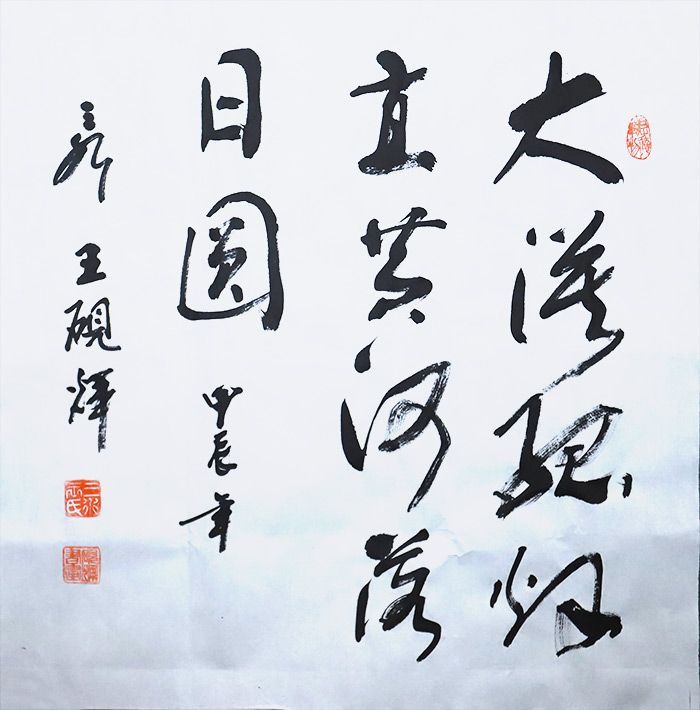 大漠孤烟
直黄河落
日圆 甲辰年
王砚辉